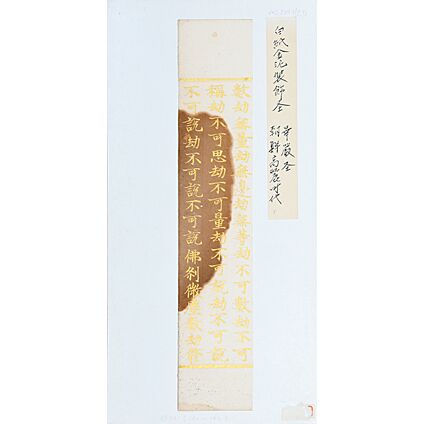 白紙金泥装飾圣
華嚴圣
朝鮮高麗時代
數劫無量劫無邊劫無等劫不可數劫不可
稱劫不可思劫不可量劫不可説劫不可説
不可説劫不可説不可説佛刹微塵數劫